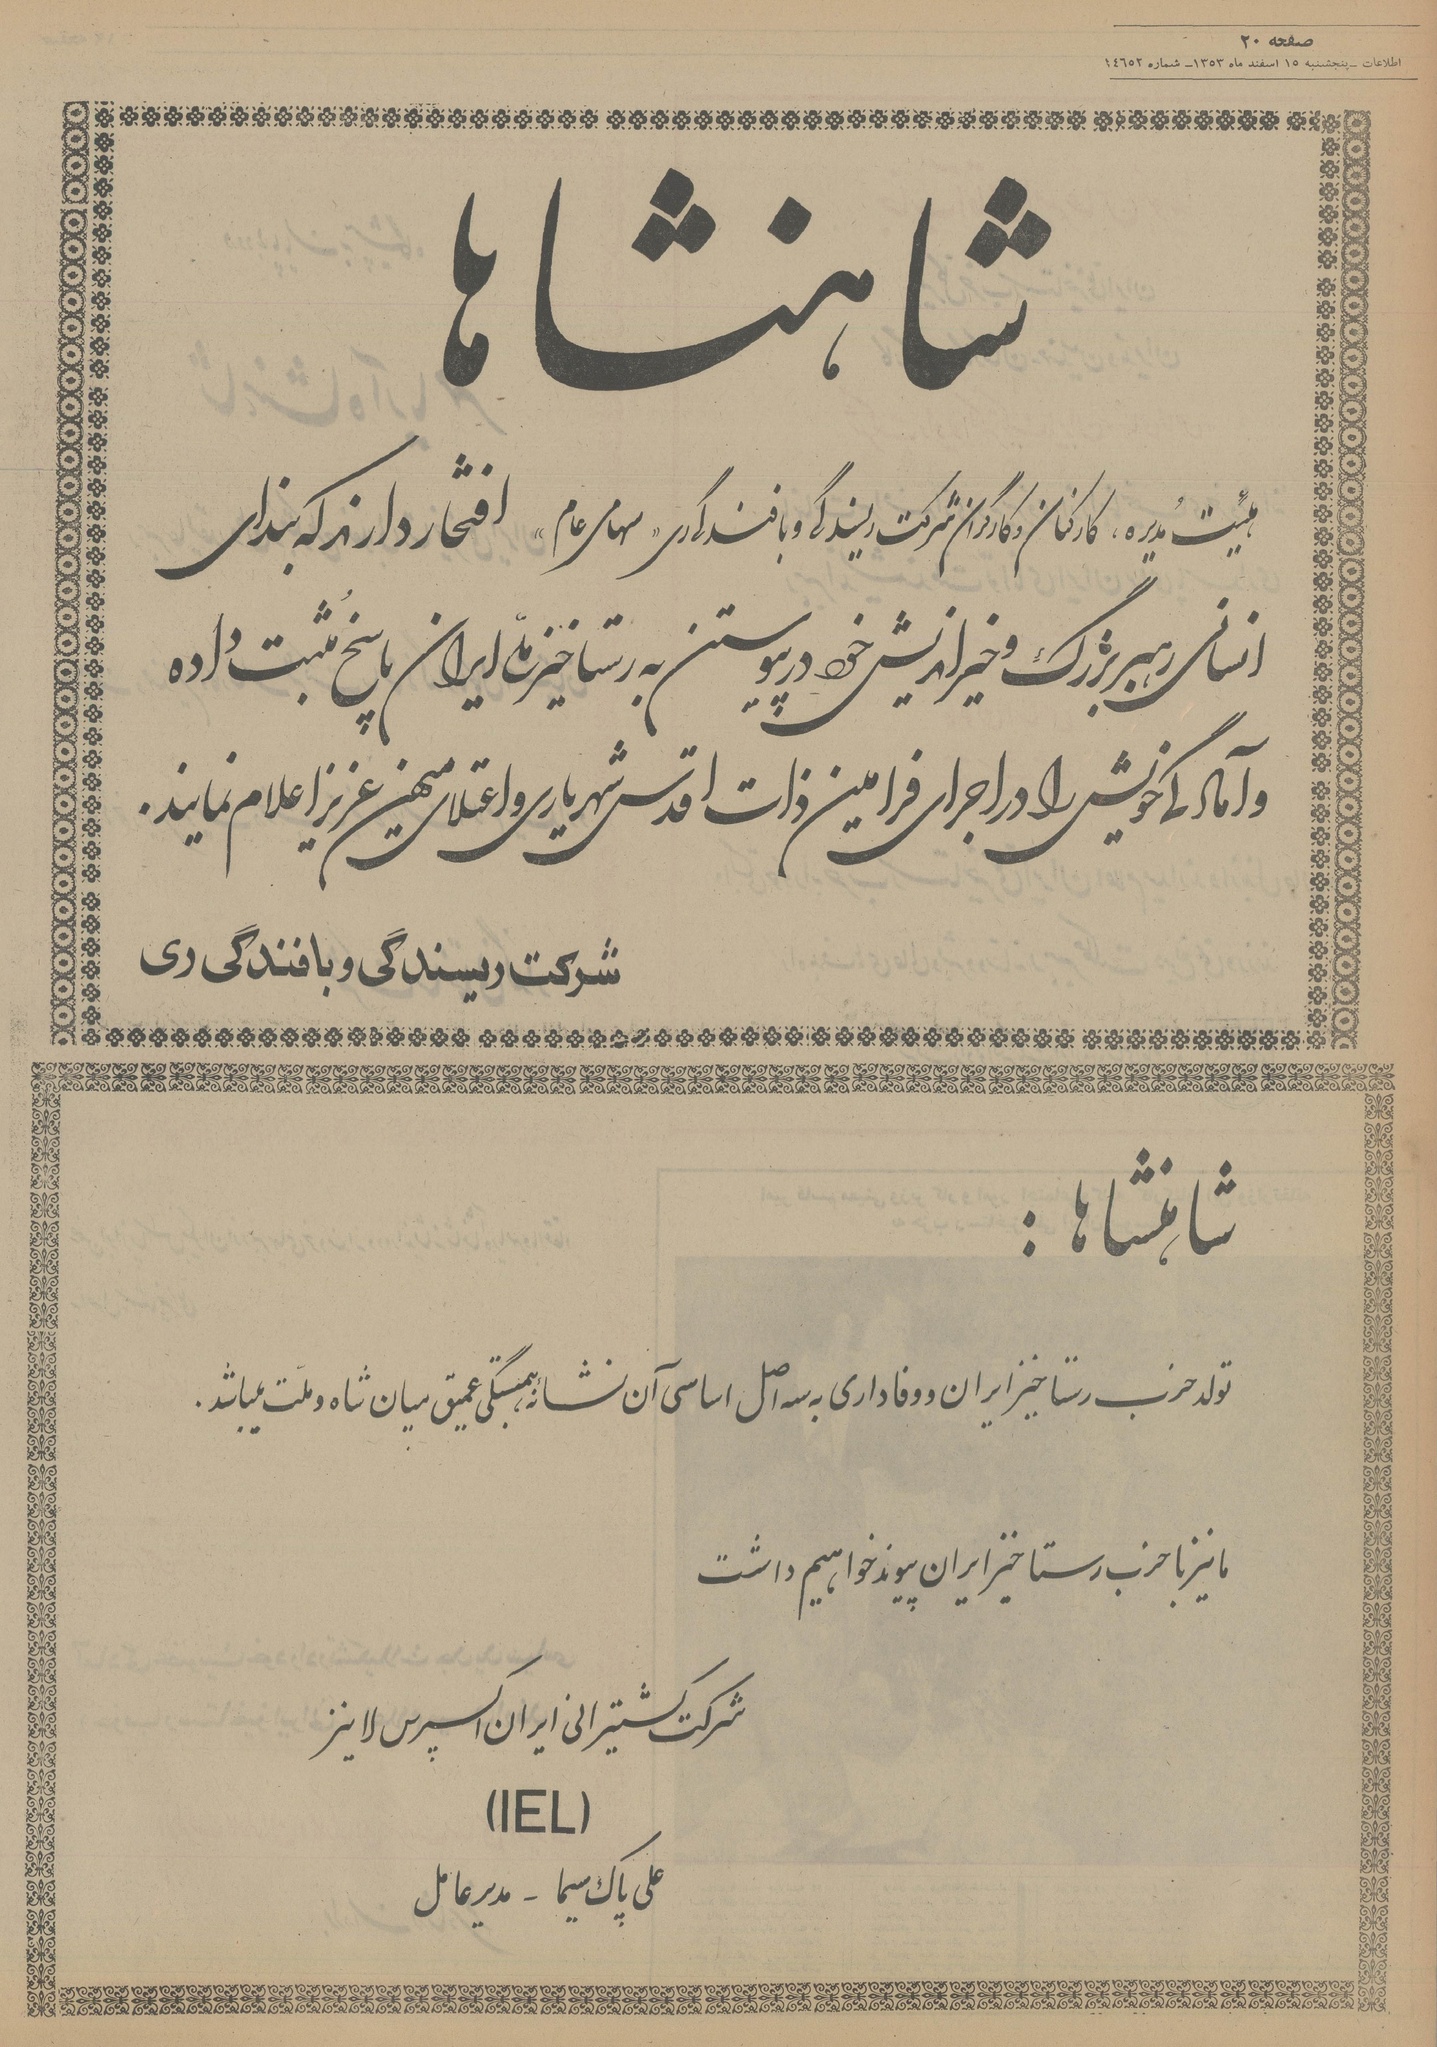 صفحه ۲۰
اطلاعات ـ پنجشنبه ۱۵ اسفند ماه ۱۳۵۳ـ شماره ۱۴۶۵۲
شاهنشاها
هیئت مدیره، کارکنان و کارگران شرکت ریسندگی و بافندگی ری «سهامی عام» افتخار دارند که بندای
انسانی رهبر بزرگ و خیراندیش خود در پیوستن به رستاخیز ملی ایران پاسخ مُثبت داده
و آمادگی خویش را در اجرای فرامین ذات اقدس شهریاری و اعتلای میهن عزیز اعلام نمایند.
شرکت ریسندگی و بافندگی ری
شاهنشاها :
تولد حزب رستاخیز ایران و وفاداری به سه اصل اساسی آن نشانه همبستگی عمیق میان شاه و ملت میباشد.
ما نیز با حزب رستاخیز ایران پیوند خواهیم داشت
شرکت کشتیرانی ایران اکسپرس لاینز
(IEL)
علی پاک سیما ـ مدیر عامل